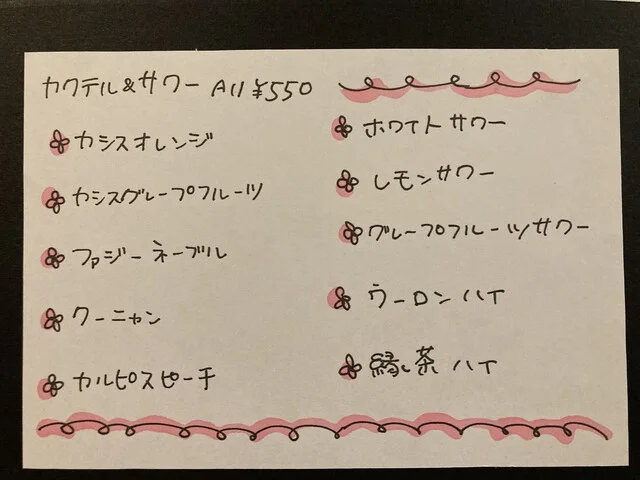 カクテル&サワー All ¥550
カシスオレンジ
カシスグレープフルーツ
ファジーネーブル
クーニャン
カルピスピーチ
ホワイトサワー
レモンサワー
グレープフルーツサワー
ウーロンハイ
緑茶ハイ